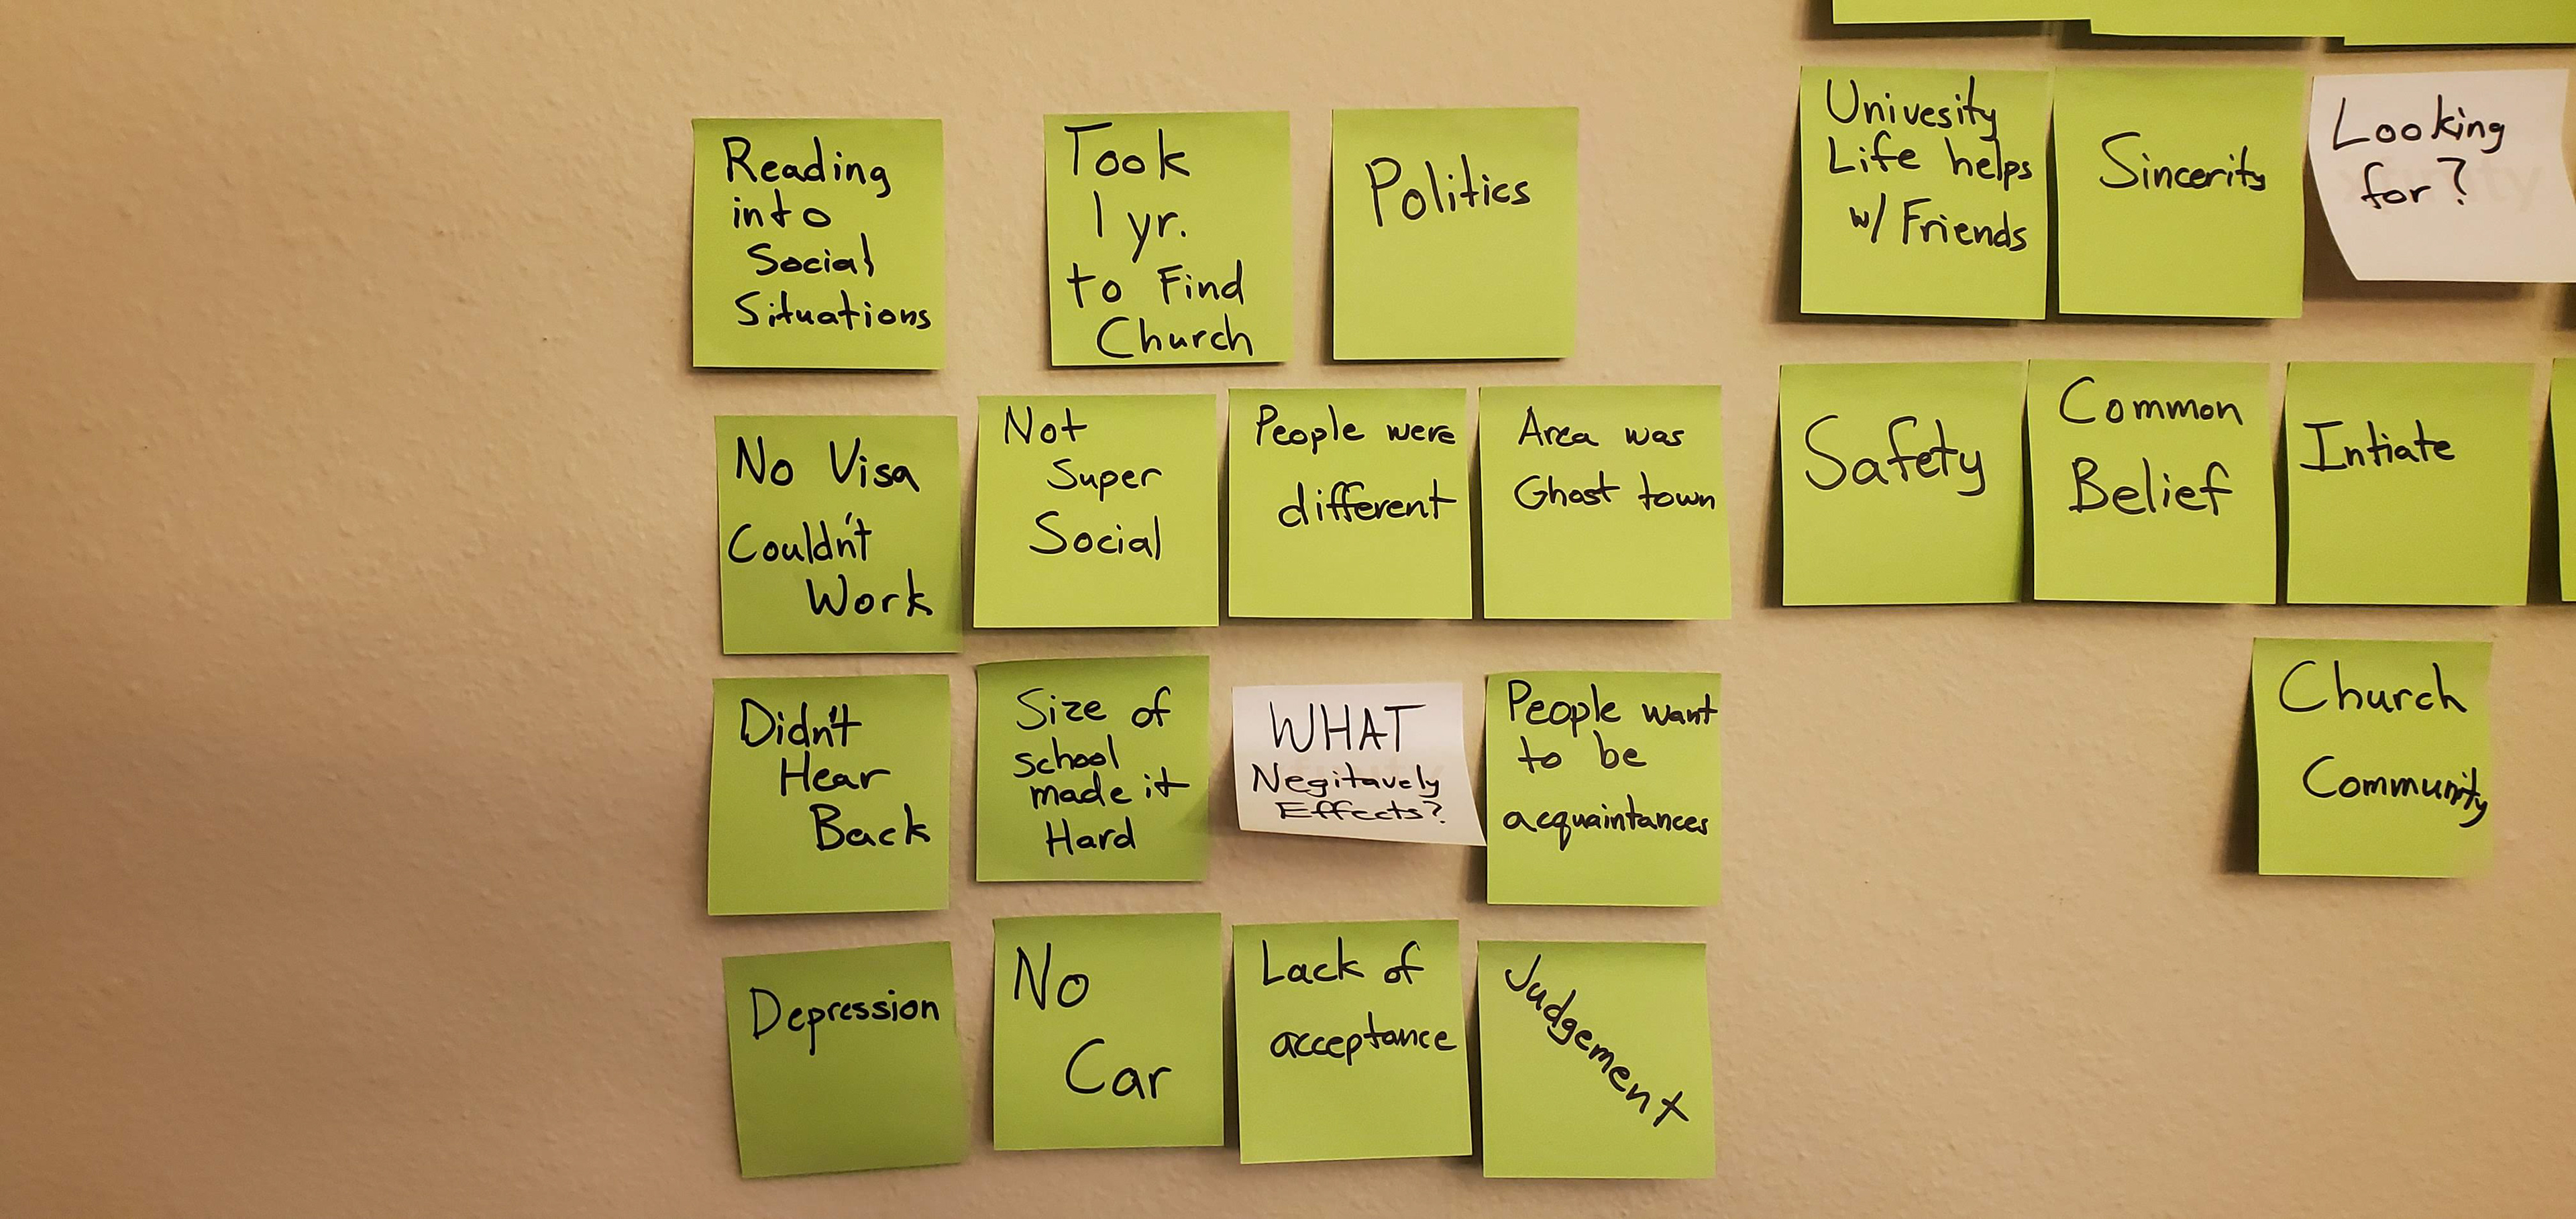 Reading
into
Social
Situations
Took
1 yr.
to Find
Church
Politics
No Visa
Couldn't
Work
Not
Super
Social
People were
different
Area was
Ghost town
Didn't
Hear
Back
Size of
school
made it
Hard
WHAT
Negitavely
Effects?
People want
to be
acquaintances
Depression
No
Car
Lack of
acceptance
Judgement
Univesity
Life helps
w/ Friends
Sincerity
Looking
for?
Safety
Common
Belief
Intiate
Church
Community